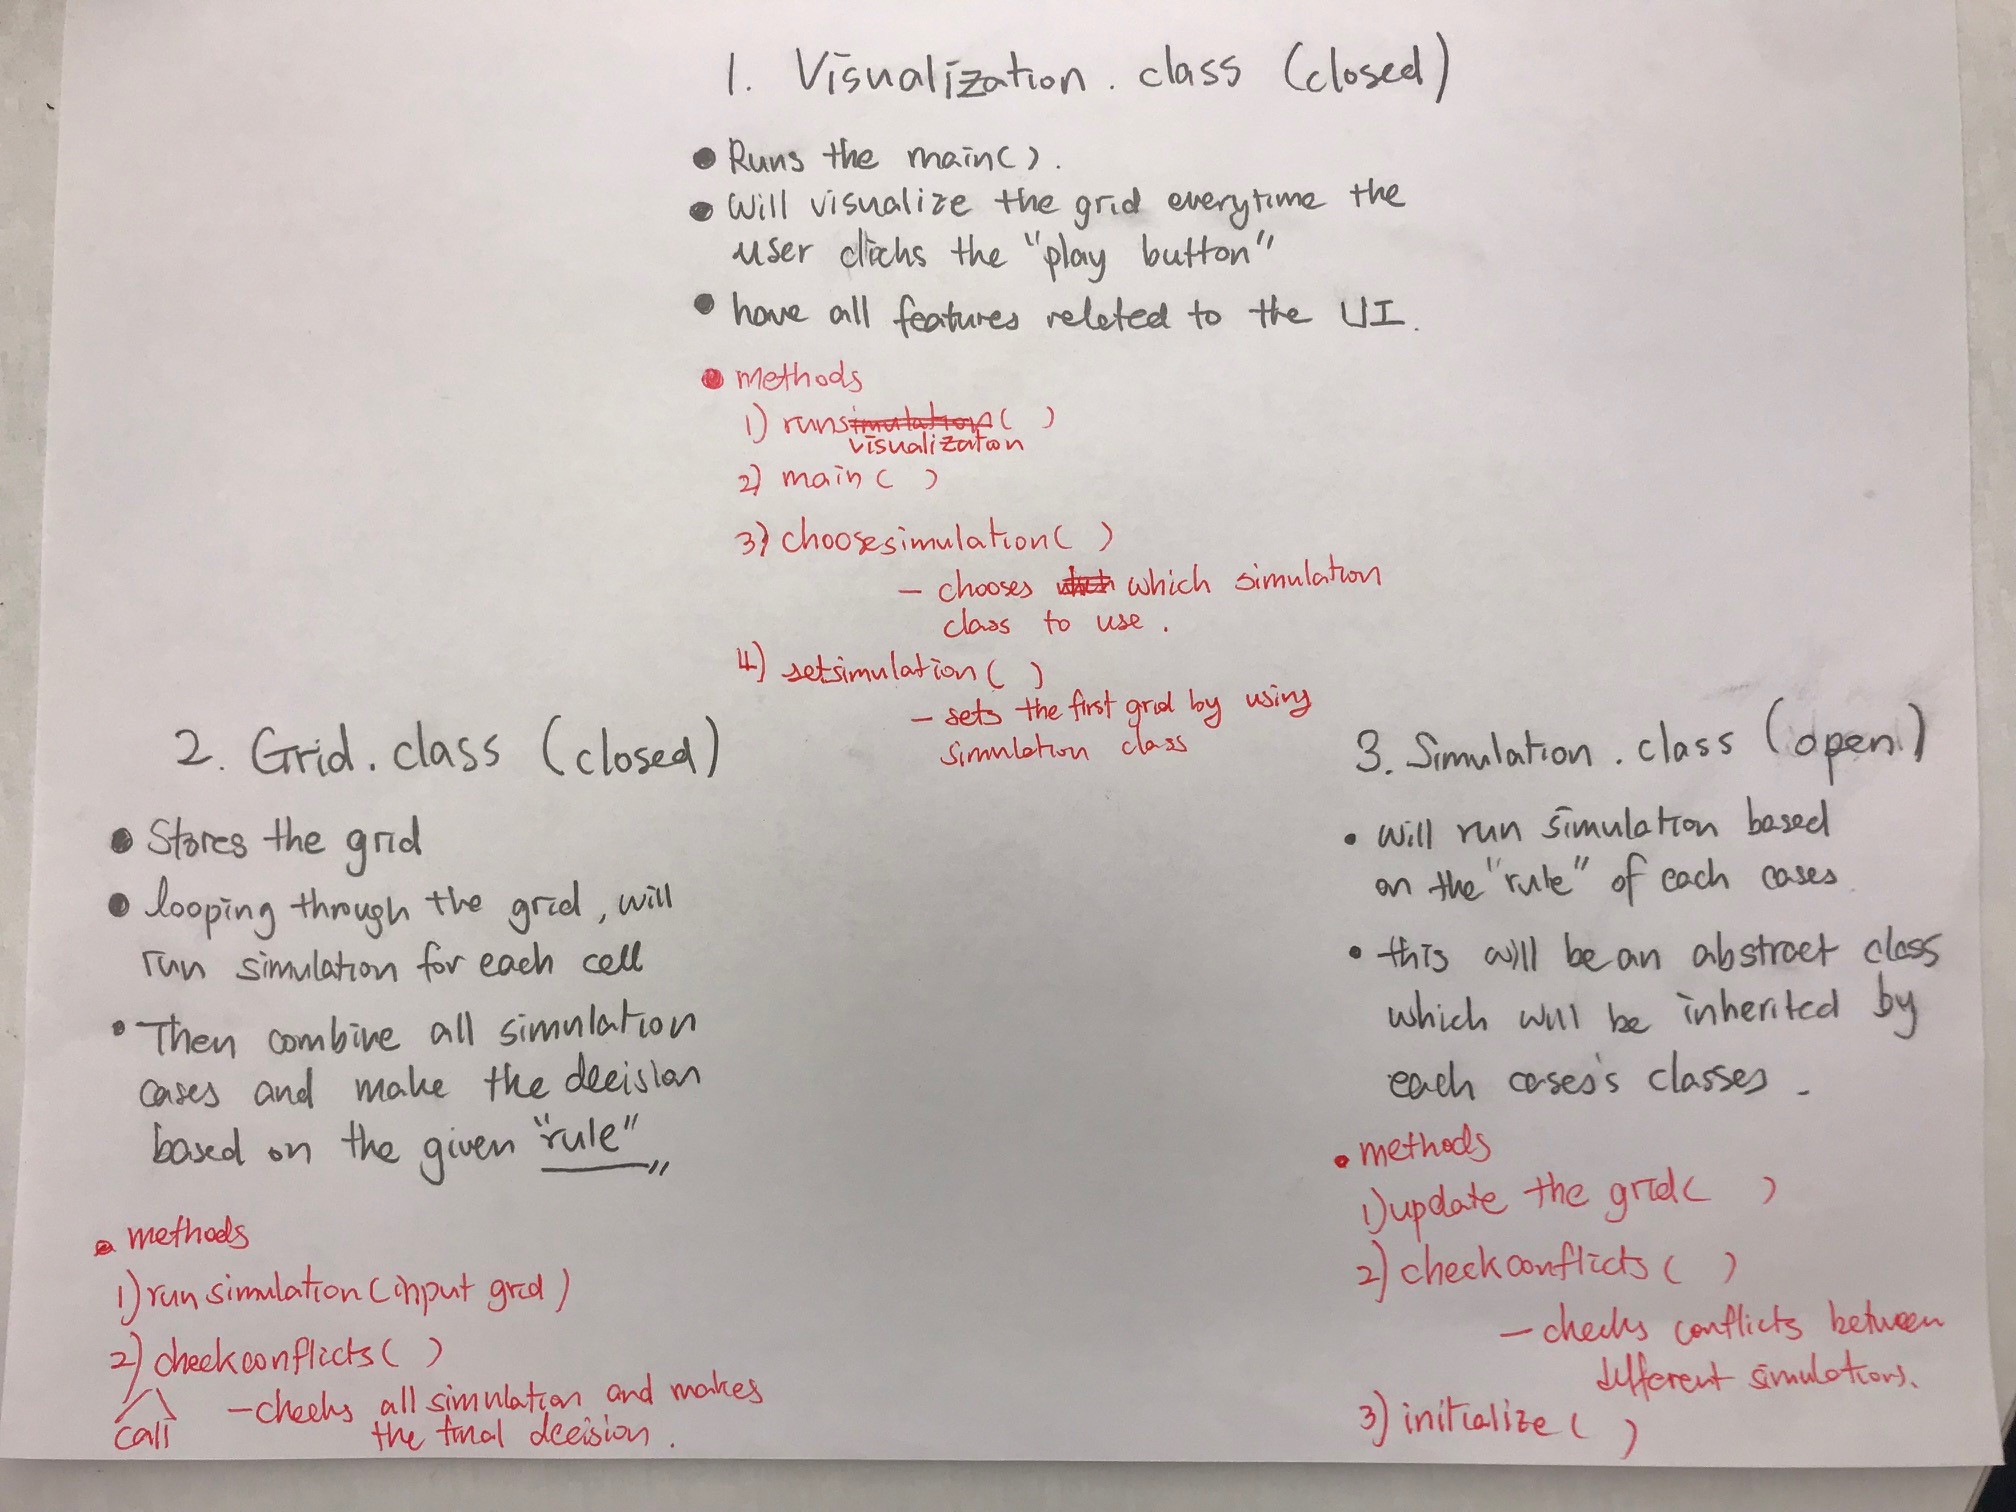 1. Visualization.class (closed)
● Runs the main().
● Will visualize the grid everytime the
user clicks the "play button"
● have all features releted to the UI.
● methods
1) runsimulation( )
visualization
2) main( )
3) choosesimulation( )
- chooses which simulation
class to use.
4) setsimulation( )
- sets the first grid by using
simulation class
2. Grid.class (closed)
● Stores the grid
● looping through the grid, will
run simulation for each cell
• Then combine all simulation
cases and make the decision
based on the given "rule"
• methods
1) run simulation (input grid)
2) checkconflicts( )
call
- checks all simulation and makes
the final decision.
3. Simulation.class (open)
• will run simulation based
on the "rule" of each cases.
• this will be an abstract class
which will be inherited by
each cases's classes.
• methods
1) update the grid( )
2) checkconflicts( )
- checks conflicts between
different simulations.
3) initialize( )